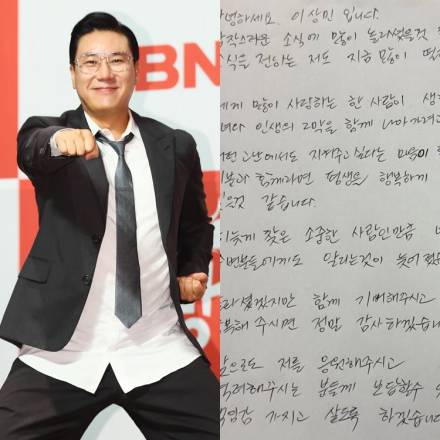 BN
안녕하세요. 이상민 입니다.
갑작스러운 소식에 많이 놀라셨을것
소식을 전하는 저도 지금 많이
많이 사랑하는 한 사람이
인생의 2막을 함께 나아가려고
고난에서도 지켜주고 싶다는 마음이
함께라면 평생을 행복하게
같습니다.
늦게 찾은 소중한 사람인만큼
주변분들에게도 알리는것이 늦어졌
함께 기뻐해주시고
해 주시면 정말 감사하겠습니
앞으로도 저를 응원해주시고
격려해주시는 분들께 보답할수
가지고 살도록 하겠습니다